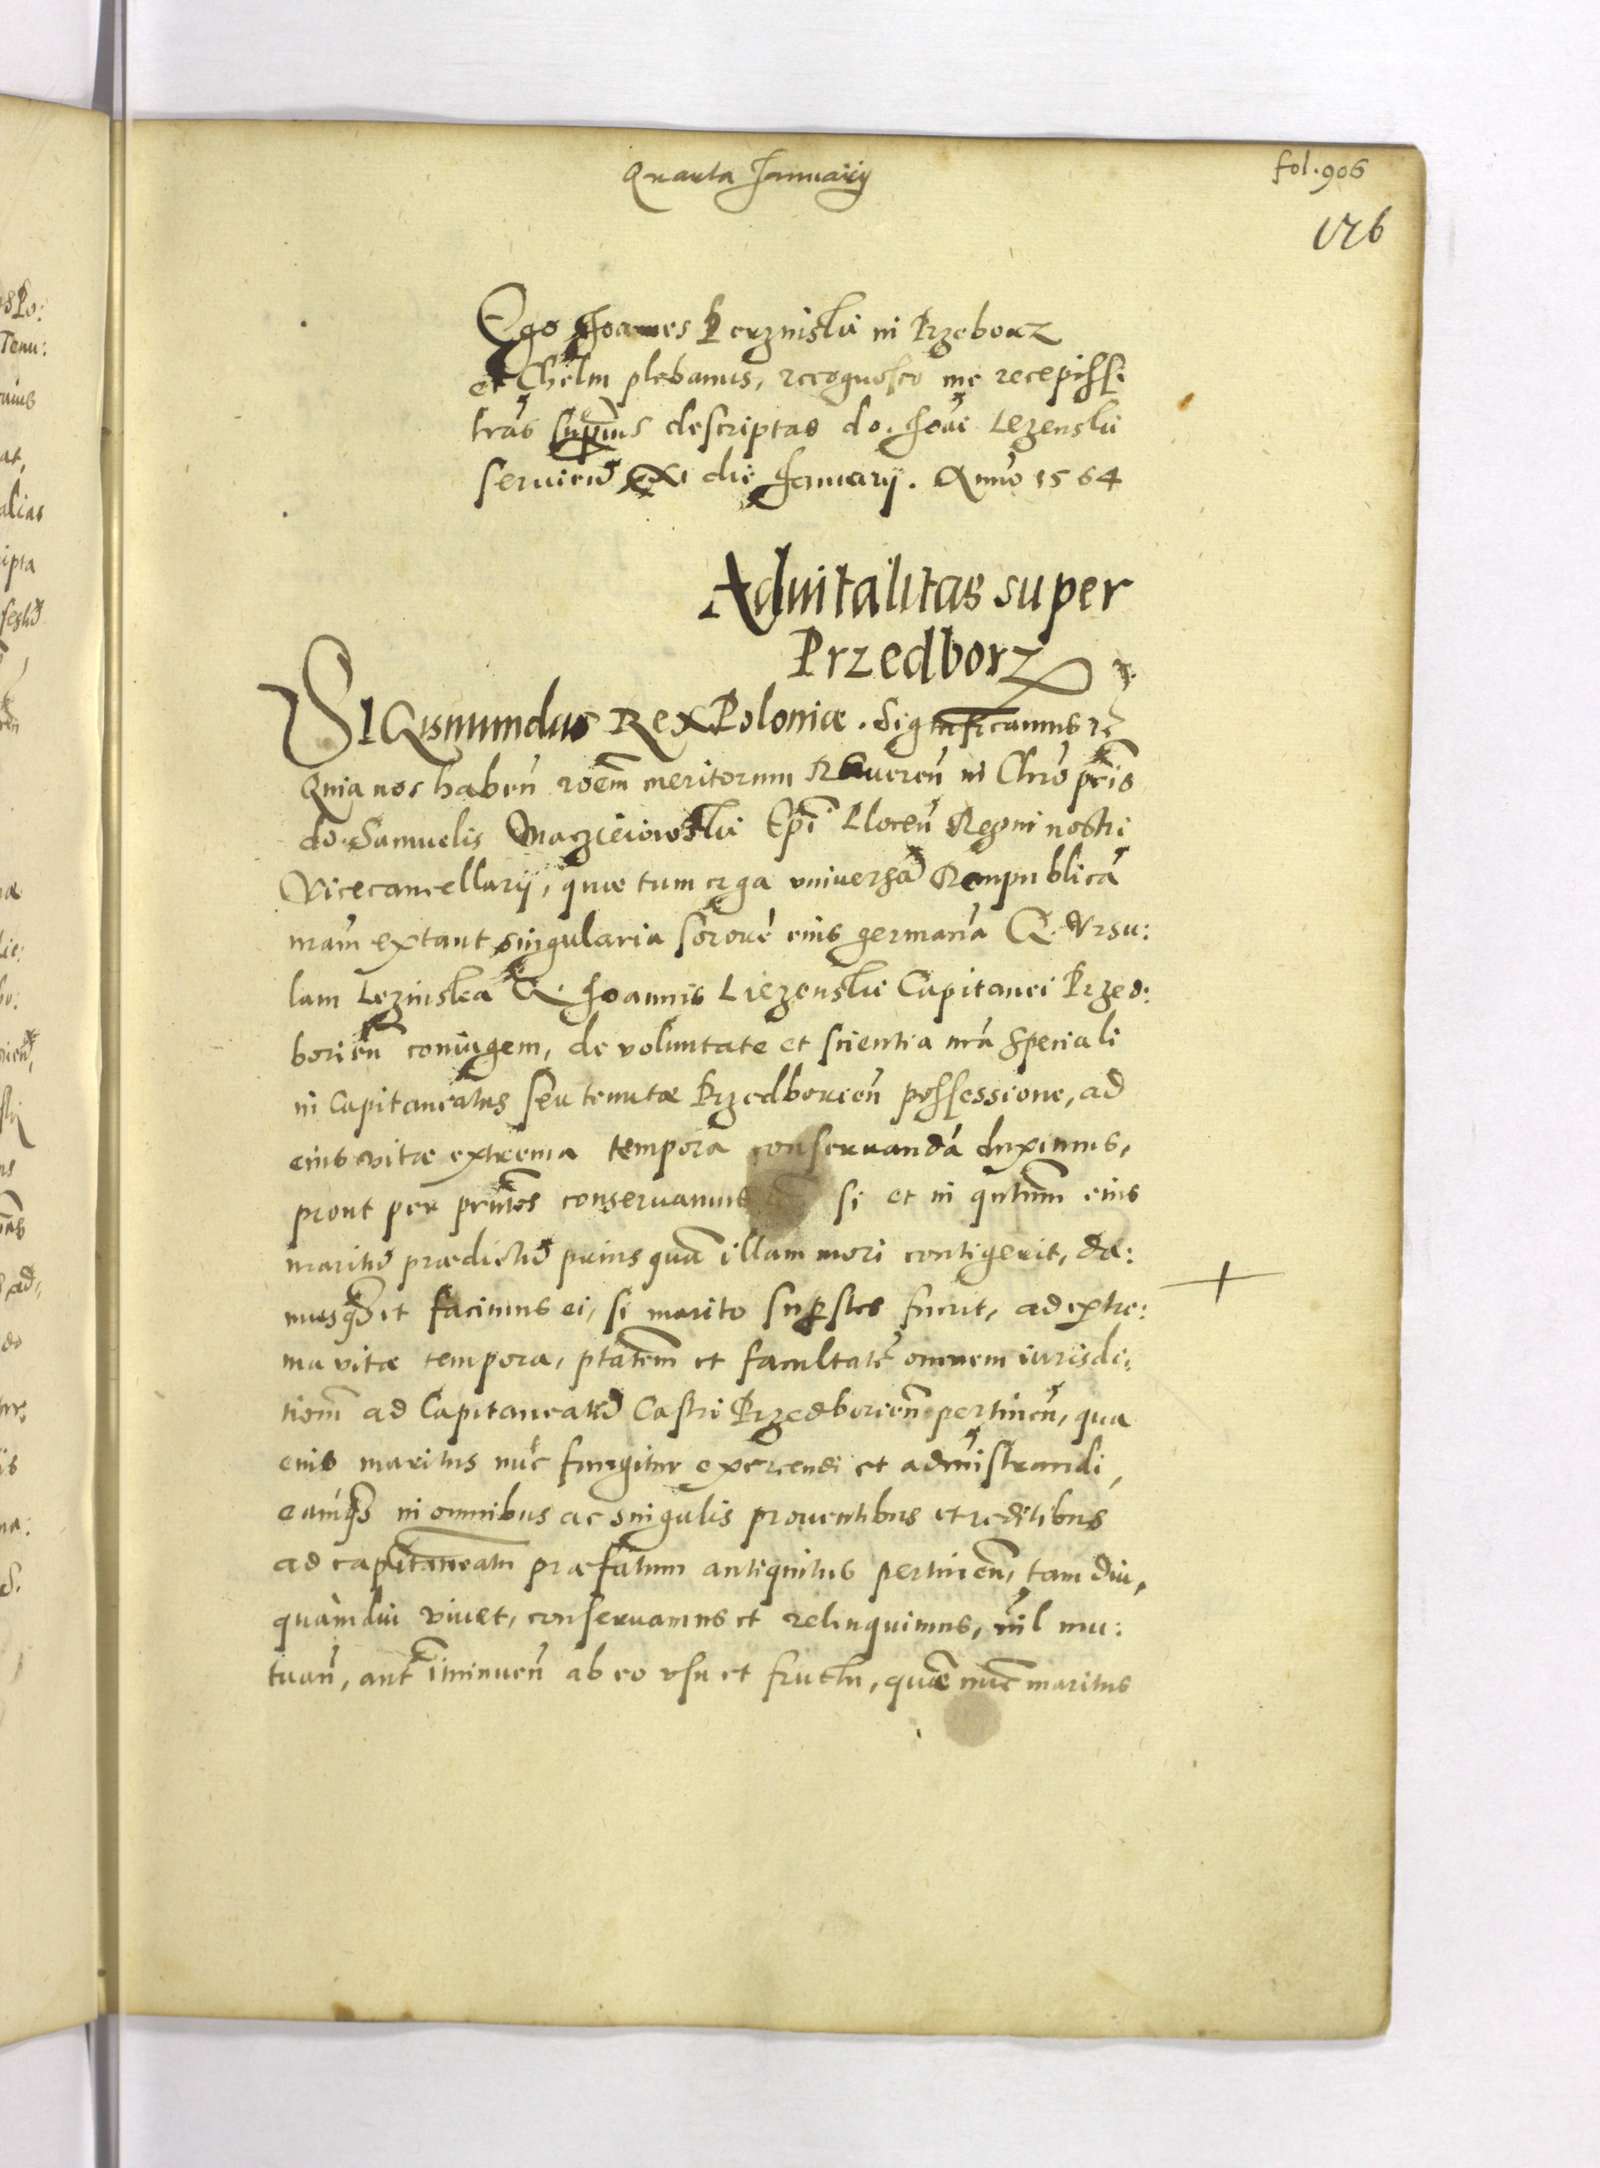 Quarta Januarij
fol. 906
176
Ego Joannes Perznisky in Przeborz
et Chelm plebanus, recognosco me recepisse
lras suprius descriptas do. Joái Lezensky
serviend XI die Januarij. Anno 1564
Advitalitas super
Przedborz
SIGISmundus Rex Poloniæ. Significamus rc
Quia nos haben roem meritorum Reveren in Chro pris
do. Samuelis Maczieiowsky Epi Plocen Regni nostri
Vicecancellarij, quæ tum erga universa Rempublica
nram extant singularia sorore eius germana G. Ursu:
lam Lezinska G. Joannis Liezensky Capitanei Przed:
borien coniugem, de voluntate et scientia nra speciali
in Capitaneatus seu tenutæ Przedborien possessione, ad
eius vitæ extrema tempora conservanda duximus,
prout per prntes conservamus si et in qntum eius
maritu prædictu prius qua illam mori contigerit, da:
musq et facimus ei, si marito supstes fuerit, ad extre:
ma vitæ tempora, ptatem et facultate omnem iurisdi:
tiom ad Capitaneatu Castri Przedborien pertinen, qua
eius maritus nuc fungitur exercendi et administrandi,
eamq in omnibus ac singulis proventibus et reditibus
ad capitaneatu præfatum antiquitus pertinen, tam diu,
quamdiu vivet, conservamus et relinquimus, nil mu:
tuan, aut iminuen ab eo usu et fructu, quæ nuc maritus